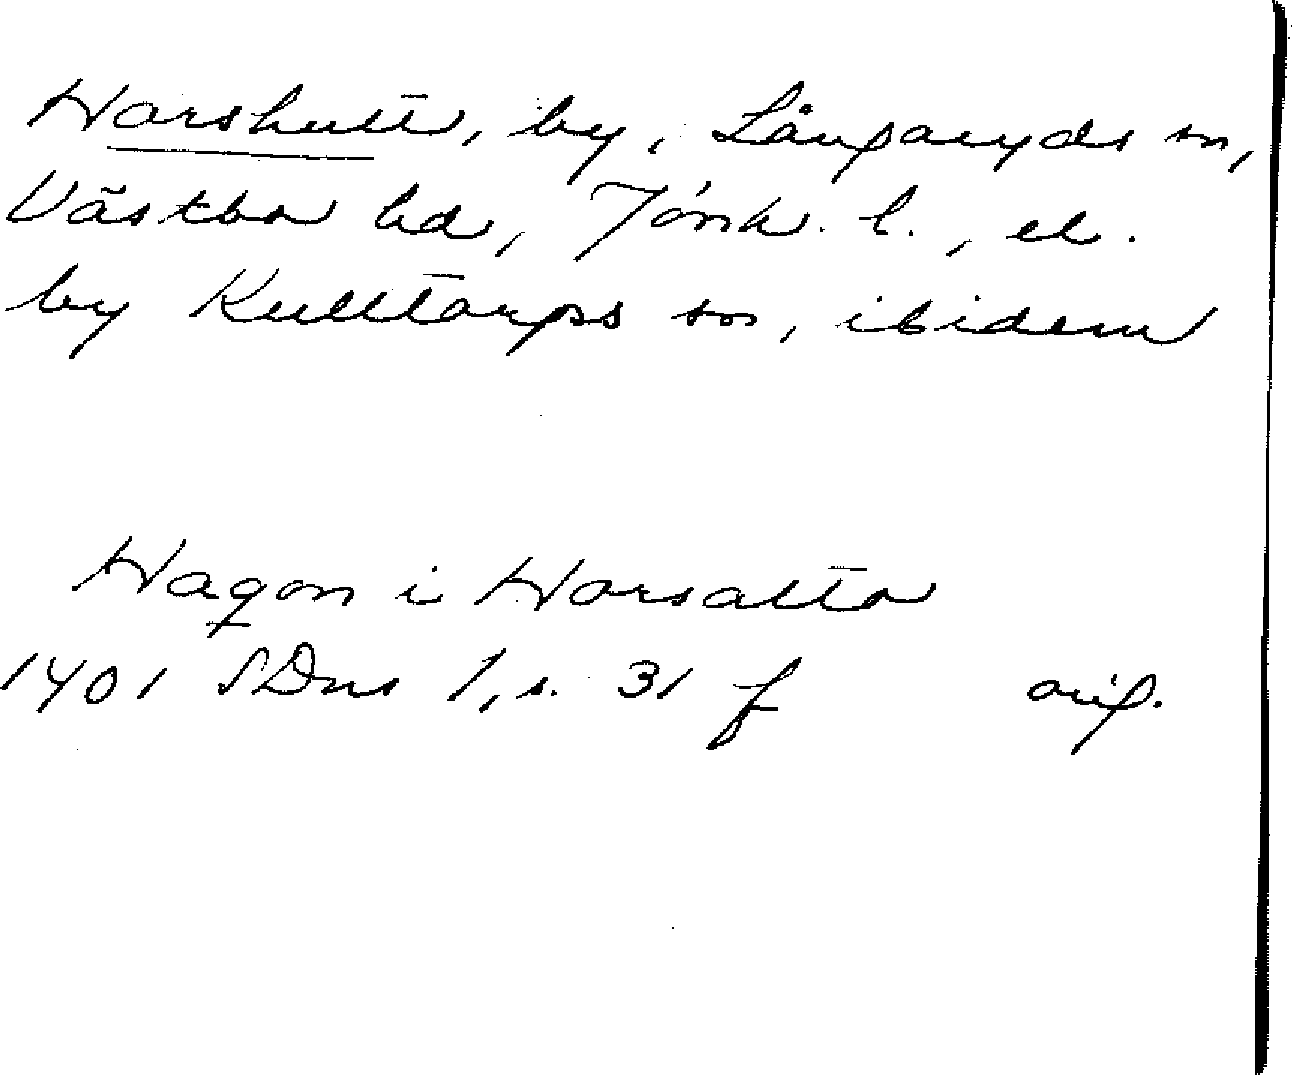 Harshult, by, Långaryds sn,
Västbo hd, Jönk. l., el.
by Kulltorps sn, ibidem
Haqon i Harsalto
1401 SDns 1, s. 31 f orig.